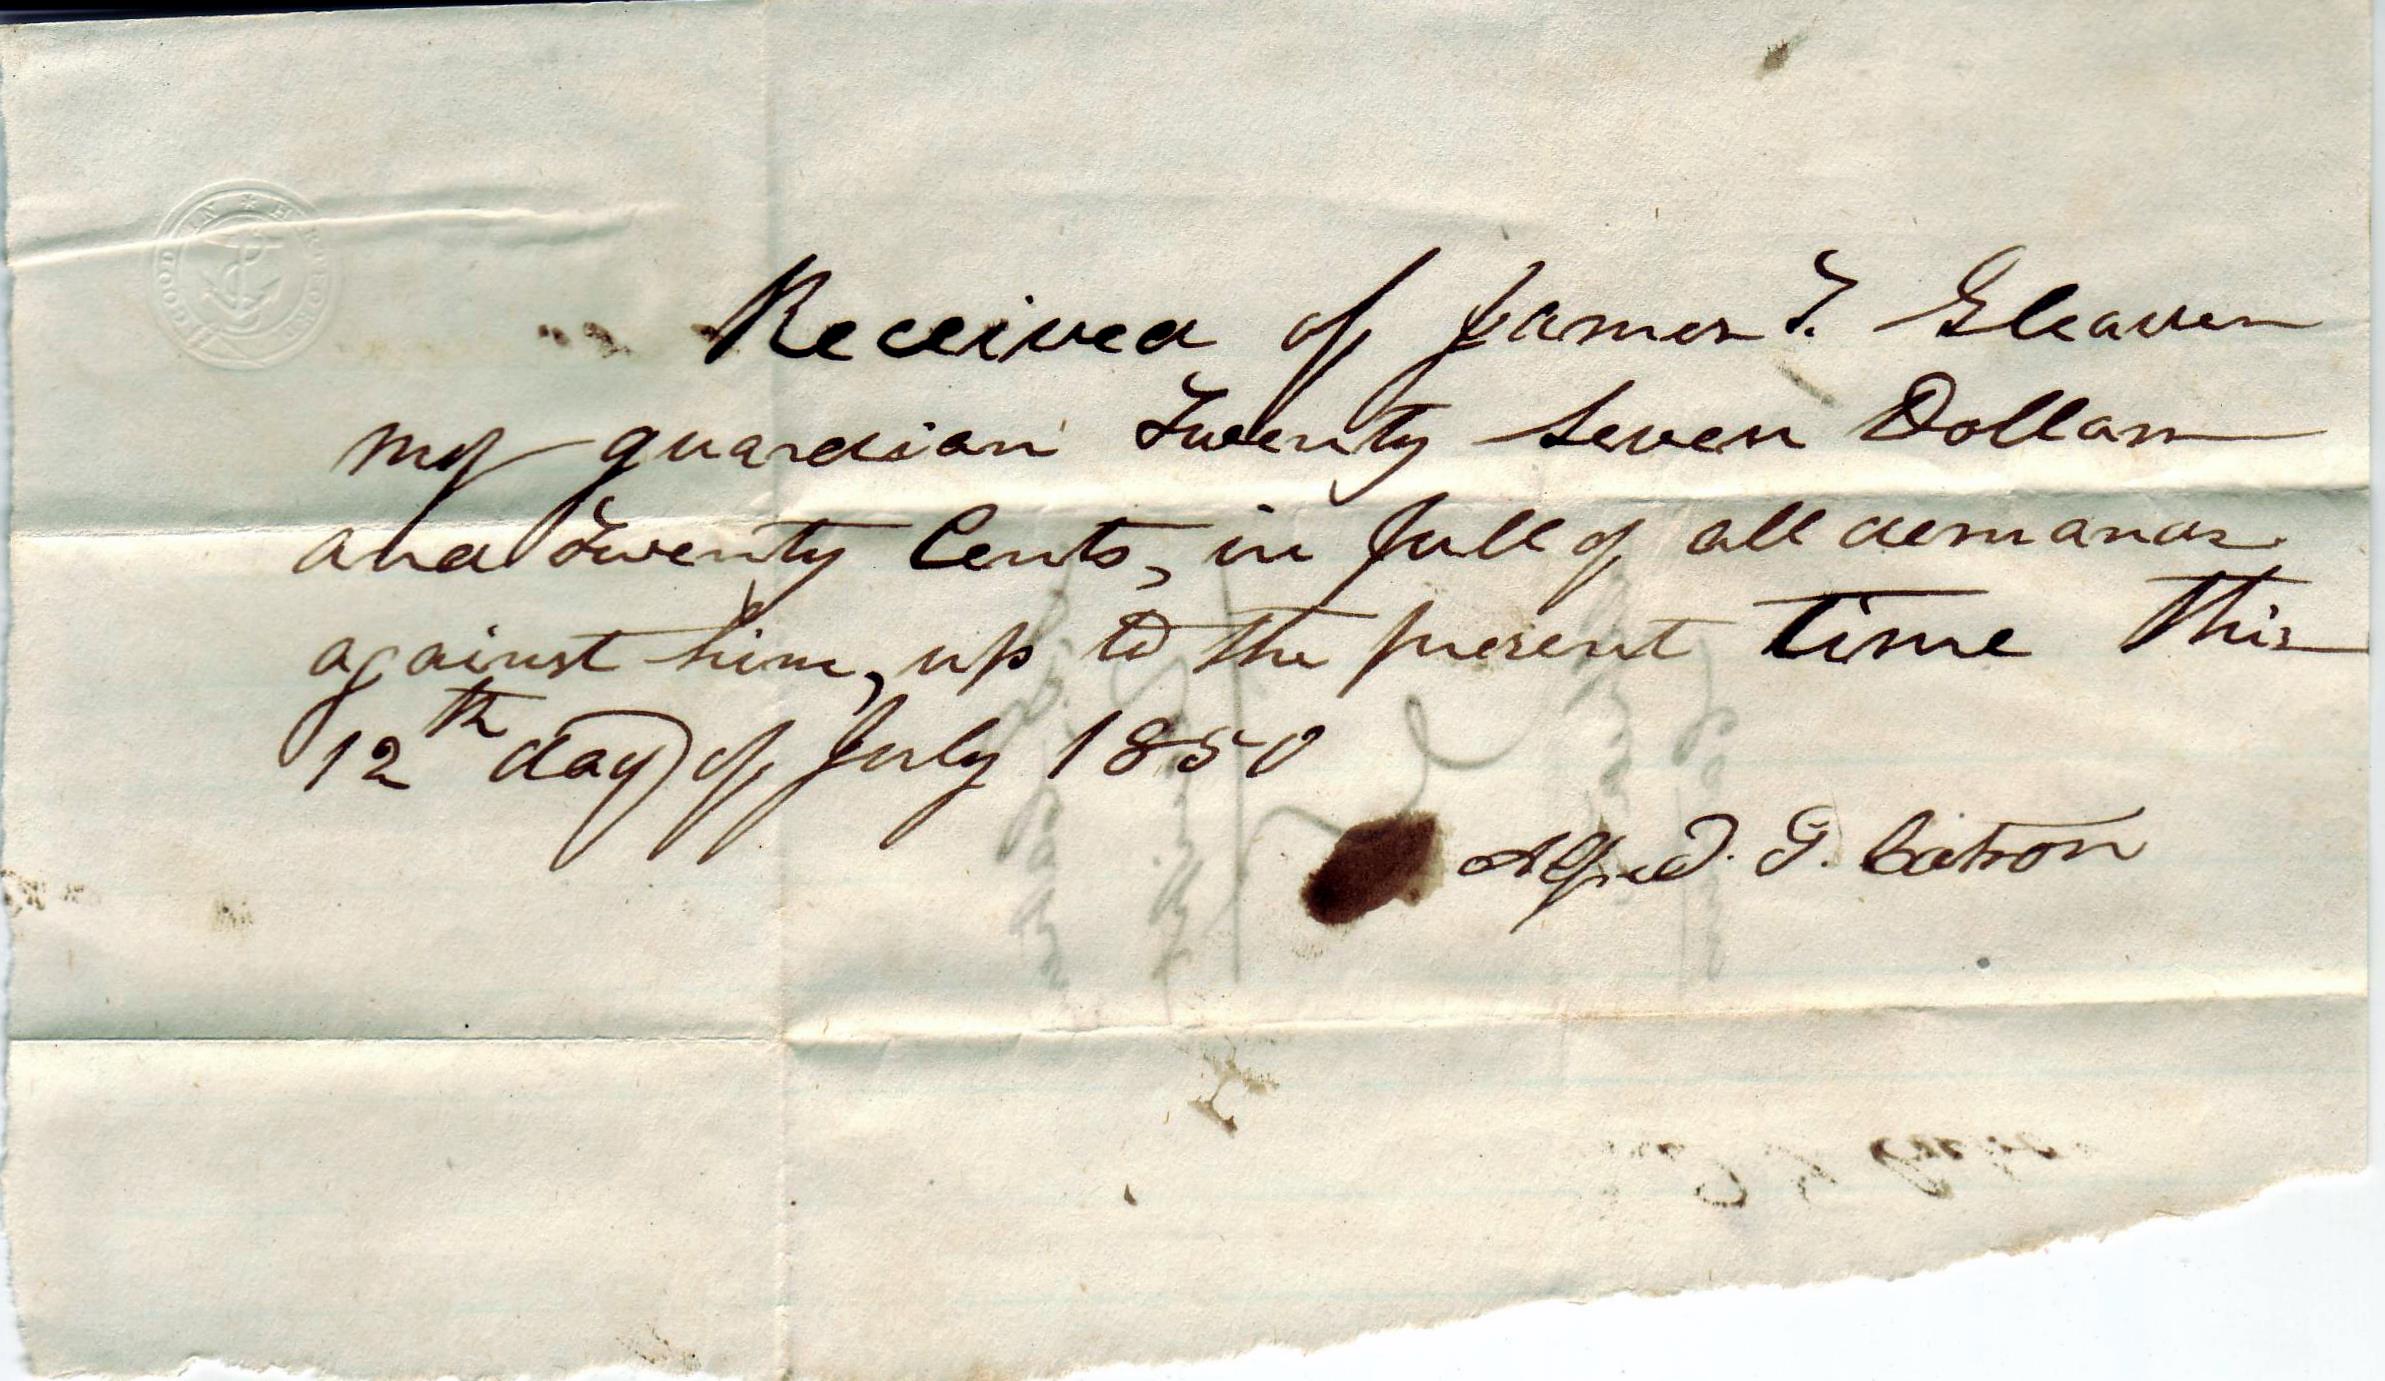 Received of James T. Gleaves
my guardian Twenty Seven Dollars
and Twenty Cents, in full of all demands
against him, up to the present time this
12th day of July 1850
Alfred. G. Catron